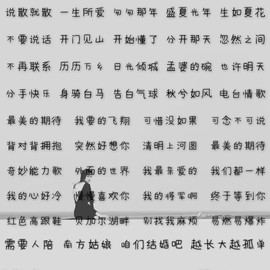 说散就散 一生所爱 匆匆那年 盛夏光年 生如夏花
不要说话 开门见山 开始懂了 分开那天 忽然之间
不再联系 历历万乡 日光倾城 孟婆的碗 也许明天
分手快乐 身骑白马 告白气球 秋兮如风 电台情歌
最美的期待 我要的飞翔 可惜没如果 可念不可说
背对背拥抱 突然好想你 清明上河图 最美的期待
奇妙能力歌 外面的世界 我最亲爱的 我们都一样
我的心好冷 慢慢喜欢你 我的将军啊 终于等到你
红色高跟鞋 贝加尔湖畔 别找我麻烦 易燃易爆炸
需要人陪 南方姑娘 咱们结婚吧 越长大越孤单